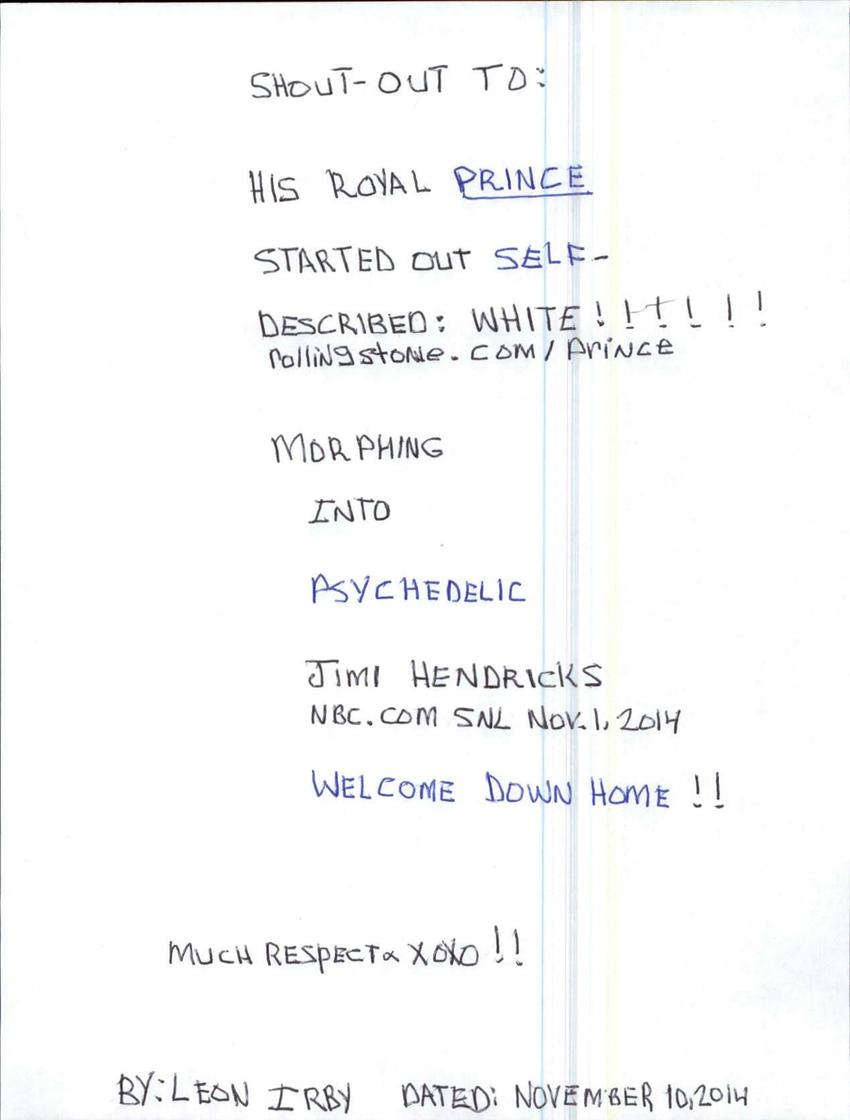 SHOUT-OUT TO:
HIS ROYAL PRINCE
STARTED OUT SELF-
DESCRIBED: WHITE!!!!!!
rollingstone.com/Prince
MORPHING
INTO
PSYCHEDELIC
JIMI HENDRICKS
NBC.COM SNL NOV.1,2014
WELCOME DOWN HOME!!
MUCH RESPECT & XOXO!!
BY:LEON IRBY DATED: NOVEMBER 10,2014